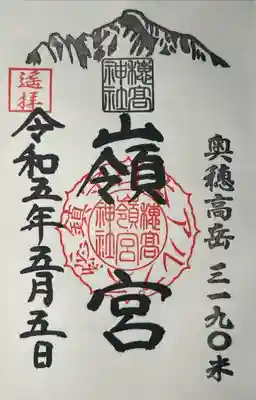 奥穂高岳 三一九〇米
穂高
神社
嶺宮
穂高
嶺宮
神社
遙拝
令和五年五月五日